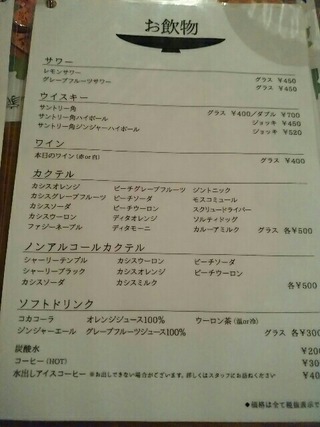 お飲物
サワー
レモンサワー グラス ¥450
グレープフルーツサワー グラス ¥450
ウイスキー
サントリー角 グラス ¥400/ダブル ¥700
サントリー角ハイボール ジョッキ ¥450
サントリー角ジンジャーハイボール ジョッキ ¥520
ワイン
本日のワイン(赤or白) グラス ¥400
カクテル
カシスオレンジ ピーチグレープフルーツ ジントニック
カシスグレープフルーツ ピーチソーダ モスコミュール
カシスソーダ ピーチウーロン スクリュードライバー
カシスウーロン ディタオレンジ ソルティドッグ
ファジーネーブル ディタモーニ カルーアミルク グラス 各¥500
ノンアルコールカクテル
シャーリーテンプル カシスウーロン ピーチソーダ
シャーリーブラック カシスオレンジ ピーチウーロン
カシスソーダ カシスミルク 各¥500
ソフトドリンク
コカコーラ オレンジジュース100% ウーロン茶(温or冷)
ジンジャーエール グレープフルーツジュース100% グラス 各¥300
炭酸水 ¥200
コーヒー(HOT) ¥30
水出しアイスコーヒー ※お出しできない場合がございます。詳しくはスタッフにお訊ねください ¥40
◆価格は全て税抜表示で